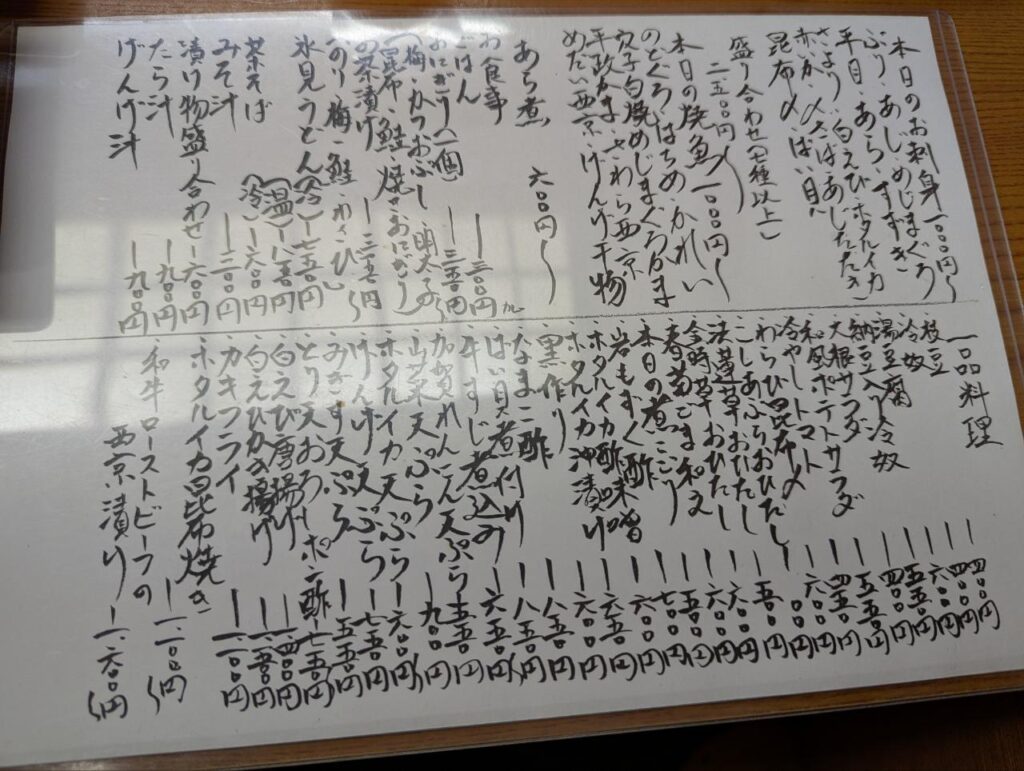 本日のお刺身 一、〇〇〇円〜
ぶり・あじ・めじまぐろ
平目・あら・すずき
さより・白えび・ホタルイカ
赤いか・〆さば・あじしたたき
昆布〆・ばい貝
盛り合わせ(七種以上)
二五〇〇円〜
本日の焼魚 一、〇〇〇円〜
のどぐろ・はちめ・かれい
白焼・めじまぐろかま
平政かま・さわら西京
めだい西京・げんげ干物
あら煮 六〇〇円〜
お食事
ごはん 一三〇〇円
おにぎり(一個) 一三五〇円
(梅・かつおぶし・明太子
昆布・鮭・焼きおにぎり)
お茶漬け
(のり・梅・鮭・わさび)
氷見うどん(冷)一七五〇円
(温)
茶そば(冷)一六〇〇円
みそ汁 一二〇〇円
漬け物盛り合わせ 一六〇〇円
たら汁 一九〇〇円
げんげ汁 一九〇〇円
一品料理
枝豆 一四〇〇円
冷奴 一四〇〇円
湯豆腐 一六〇〇円
納豆入り冷奴 一五五〇円
大根サラダ
和風ポテトサラダ 一五五〇円
冷やしトマト 一四五〇円
わらび昆布〆 一六〇〇円
こしあぶらおひたし
法蓮草おひたし 一五〇〇円
金時草おひたし 一六〇〇円
春菊ごま和え 一六〇〇円
本日の煮こごり
岩もずく酢 一六〇〇円
ホタルイカ酢味噌
ホタルイカ沖漬け 一六〇〇円
黒作り
なまこ酢 一八五〇円
ばい貝煮付け 一八五〇円
牛すじ煮込み 一六五〇円
加賀れんこん天ぷら 一五五〇円
山菜天ぷら 一九〇〇円
ホタルイカ天ぷら 一六〇〇円
げんげ天ぷら 一七五〇円
みぎす天ぷら 一五五〇円
とり天おろしポン酢 一七五〇円
白えび唐揚げ
白えびかき揚げ
カキフライ
ホタルイカ昆布焼き
和牛ローストビーフの 一、二〇〇円
西京漬け 一、六〇〇円